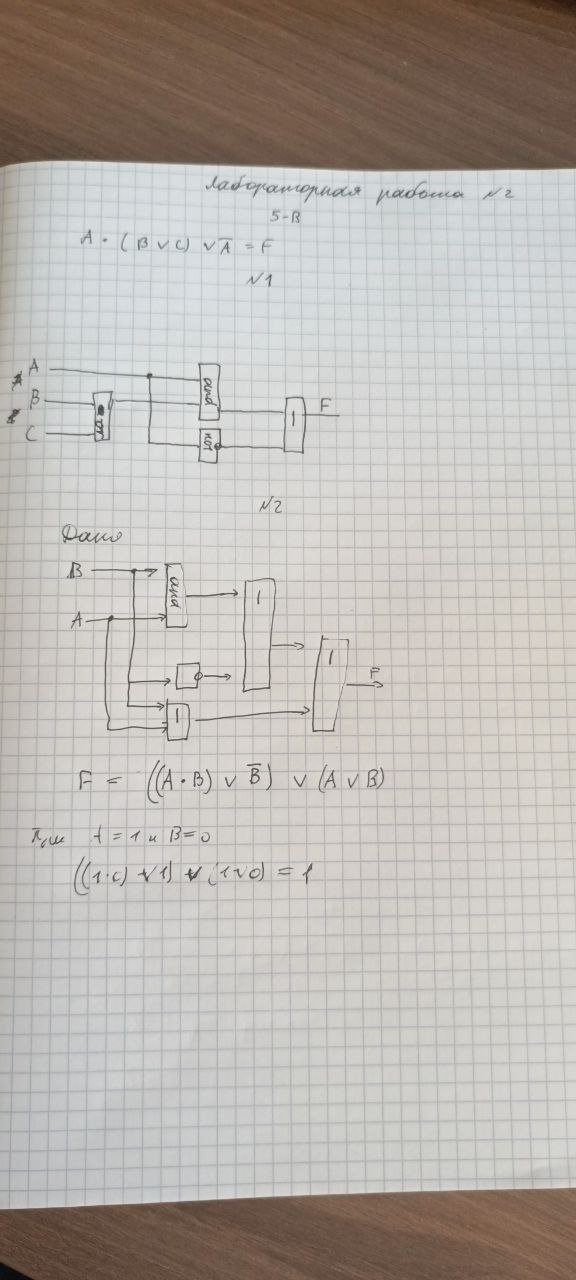 Лабораторная работа №2
5-В
A · (B ∨ C) ∨ A̅ = F
№1
A
B
C
or
and
not
1
F
№2
Дано
B
A
and
1
1
1
F
F = ((A · B) ∨ B̅) ∨ (A ∨ B)
При A = 1 и B = 0
((1·0) ∨ 1) ∨ (1 ∨ 0) = 1